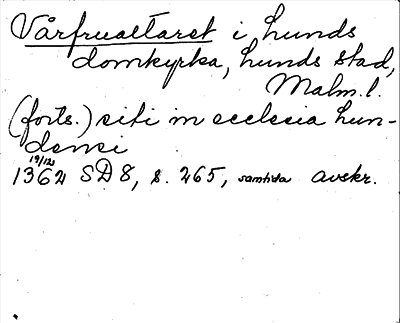 Vårfrualtaret i Lunds
domkyrka, Lunds stad,
Malm.l.
(forts.) siti in ecclesia Lun-
densi
19/12
1362 SD 8, s. 265, samtida avskr.